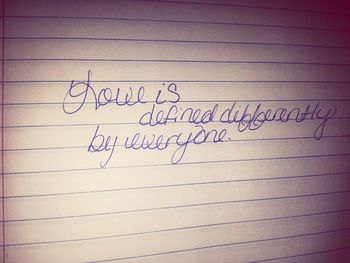 Love is
defined differently
by everyone.